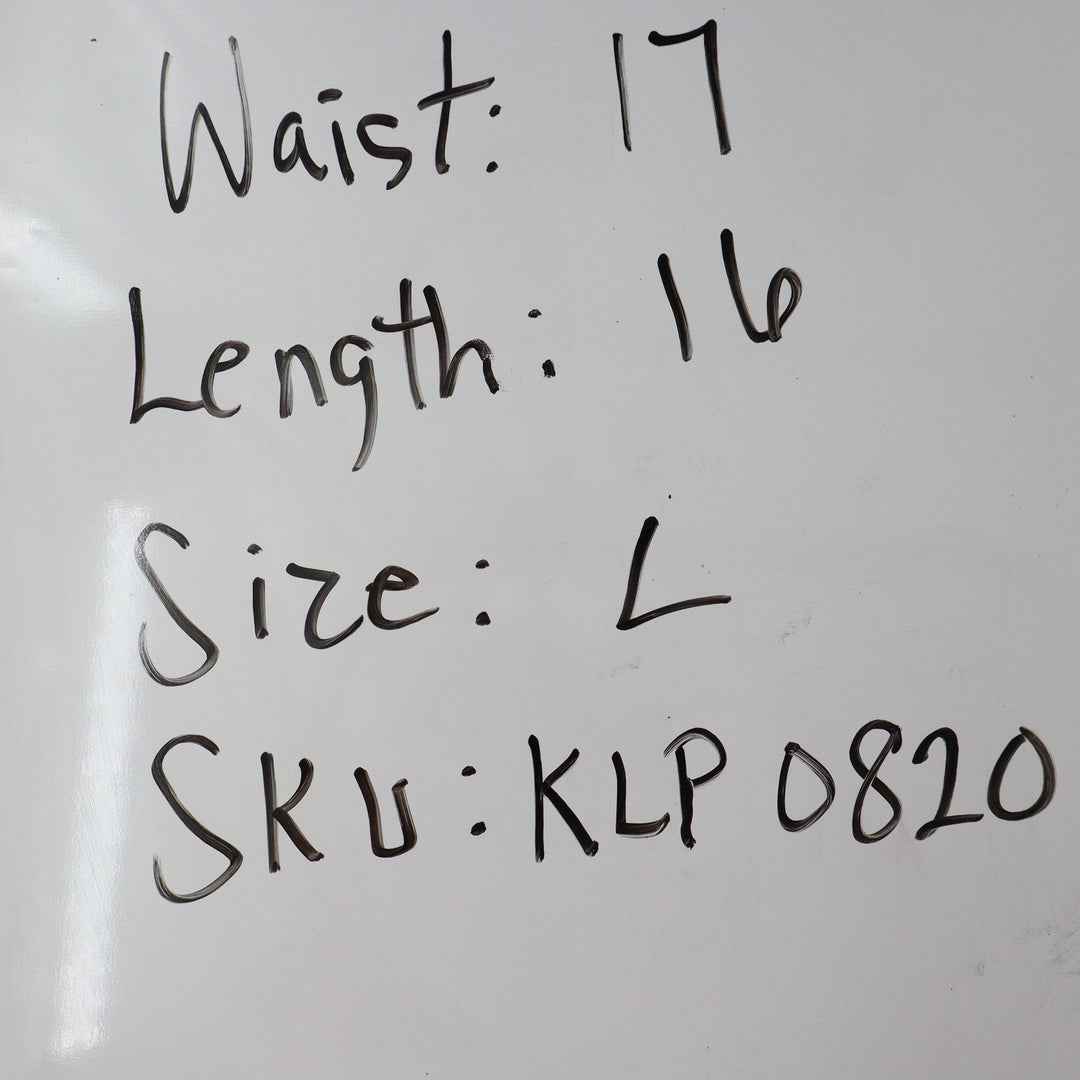 Waist: 17
Length: 16
Size: L
SKU: KLP 0820